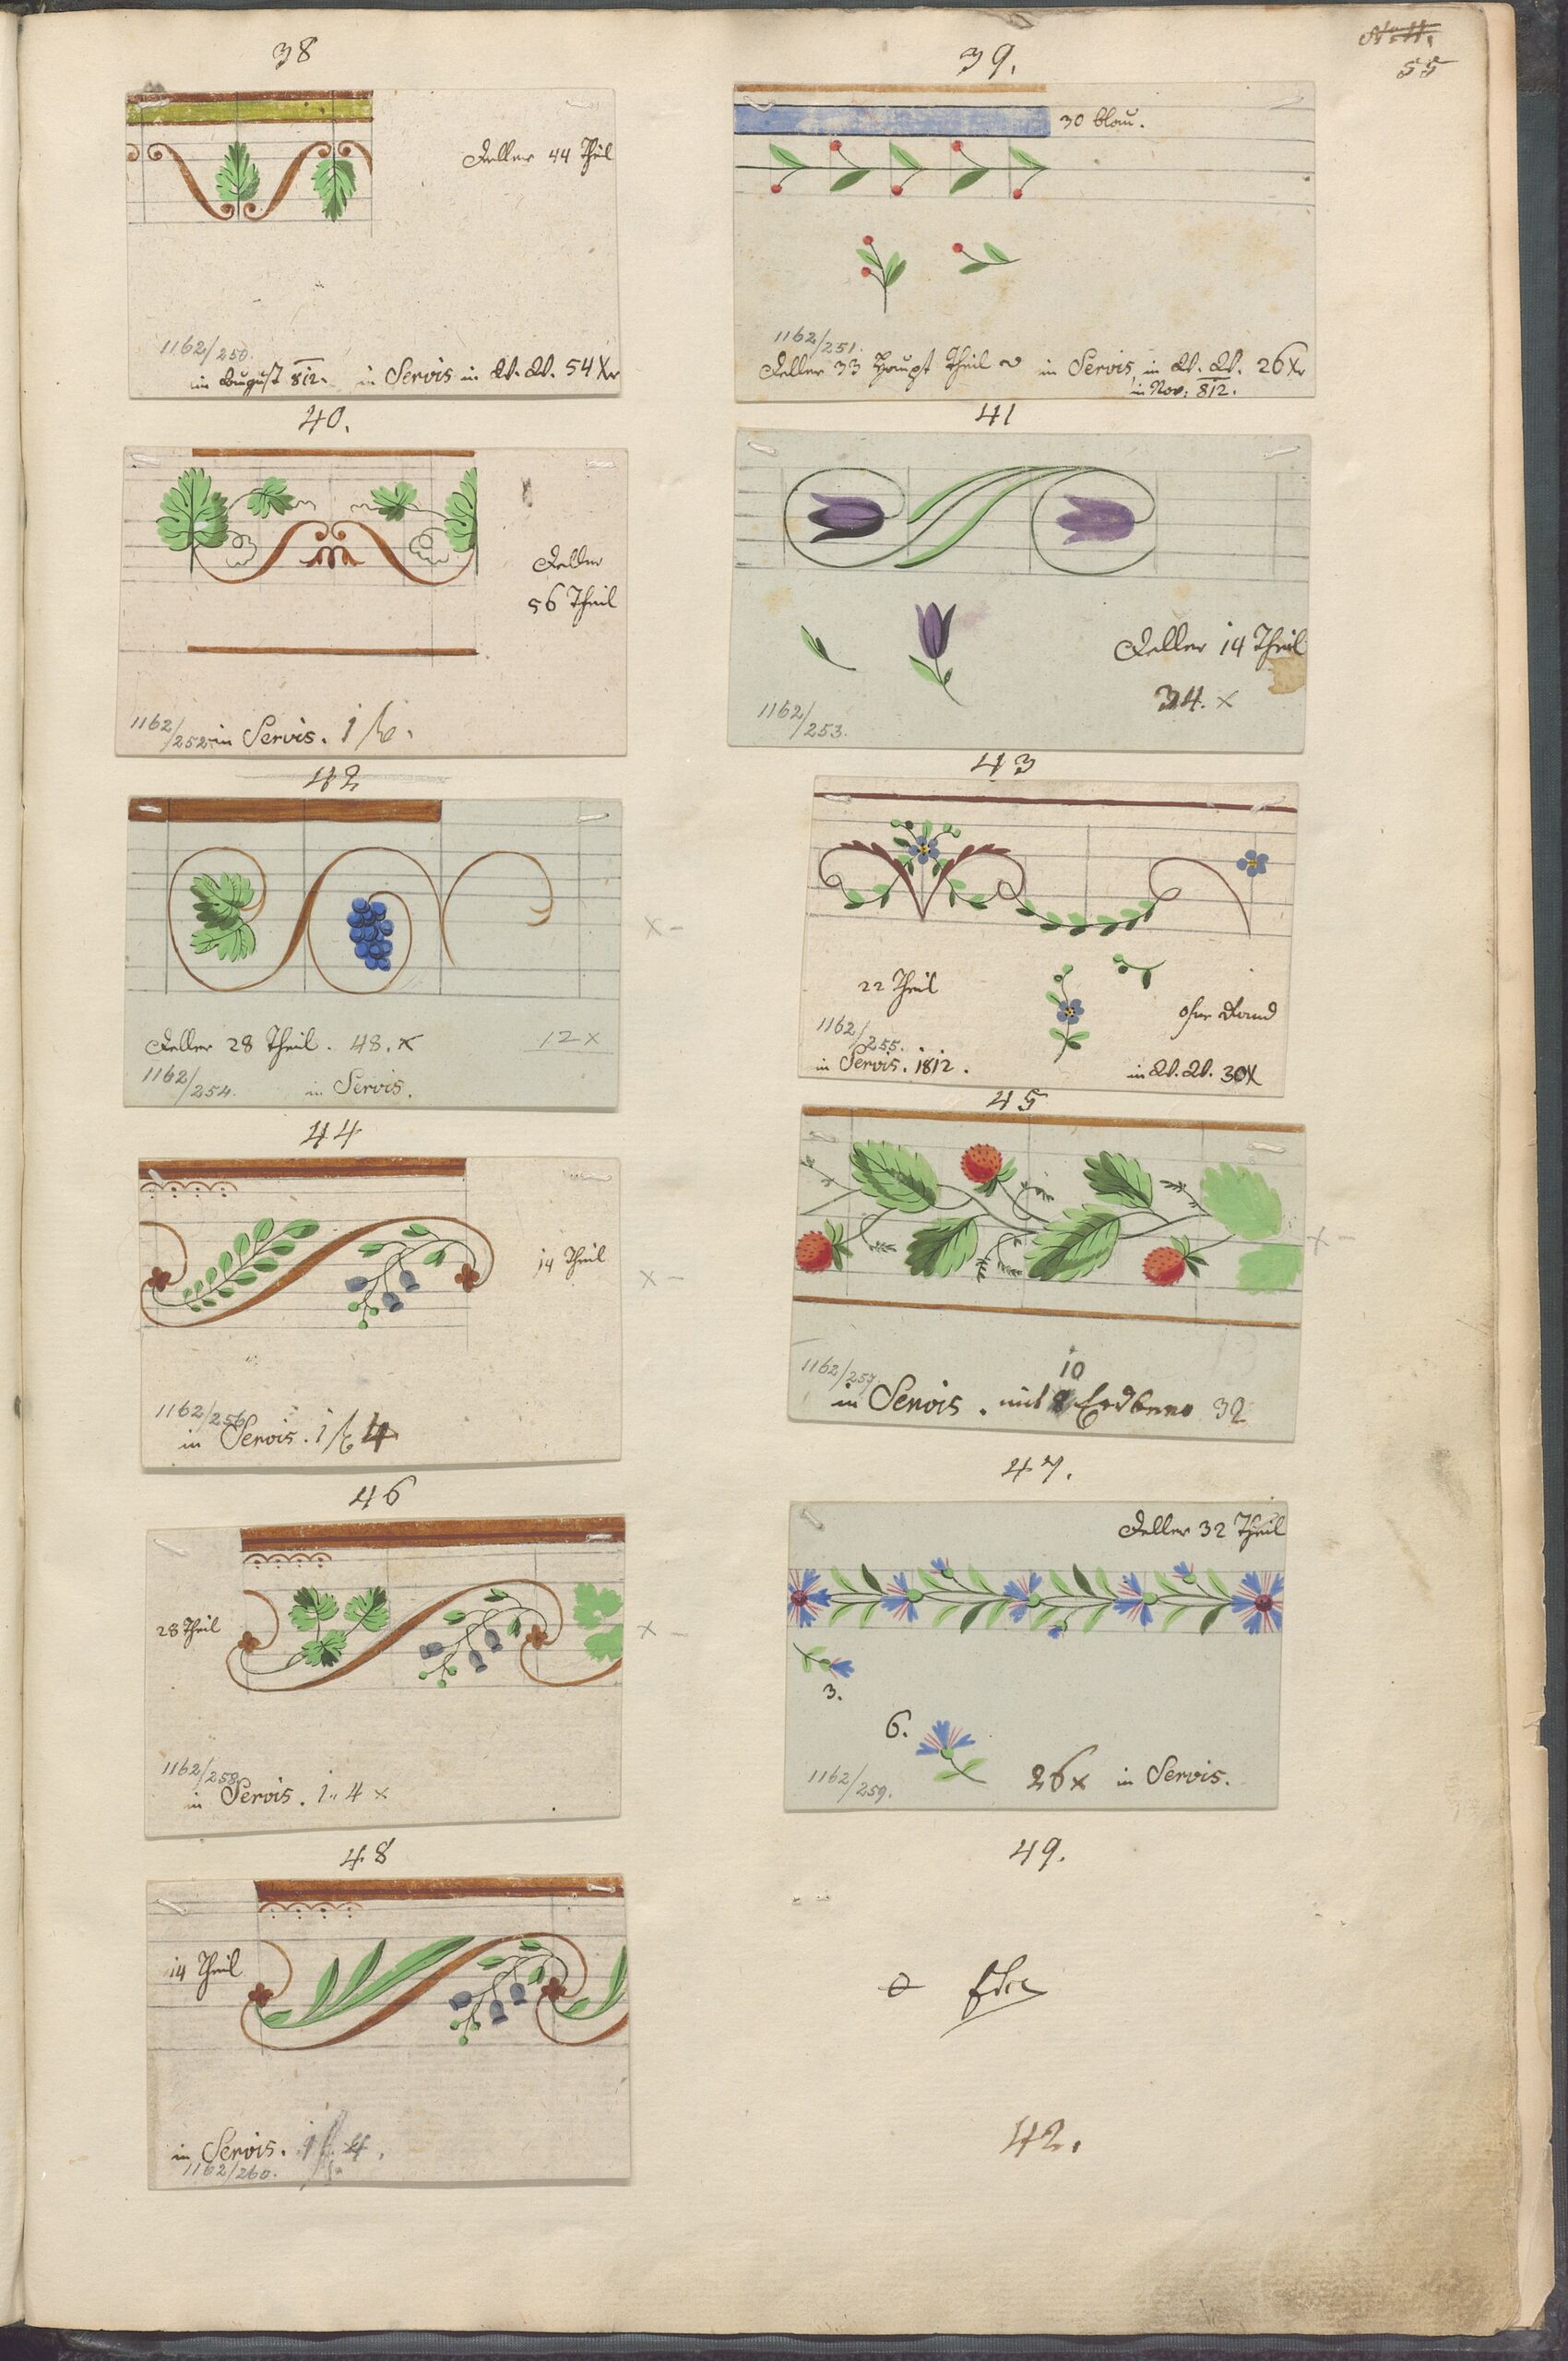 55
38
Teller 44 Theil
1162/250.
im August 812. in Servis in W. W. 54 Xr
39.
30 blau.
1162/251.
Teller 33 Haupt Theil in Servis in W. W. 26 Xr
in Nov: 812.
40.
Teller
56 Theil
1162/252
in Servis. 1
41
Teller 14 Theil
34. x
1162/253.
42
Teller 28 Theil. 48. x
12 x
1162/254.
in Servis.
x -
43
22 Theil
1162/255.
ohne Rand
in Servis. 1812.
in W. W. 30X
44
14 Theil
x -
1162/256
in Servis. 1 4
45
x -
1162/257.
10
in Servis. mit Erdbeer 32
46
28 Theil
x -
1162/258
in Servis. 1.. 4 x
47.
Teller 32 Theil
3.
6.
26x in Servis.
1162/259.
48
14 Theil
in Servis. 4.
1162/260.
49.
42.